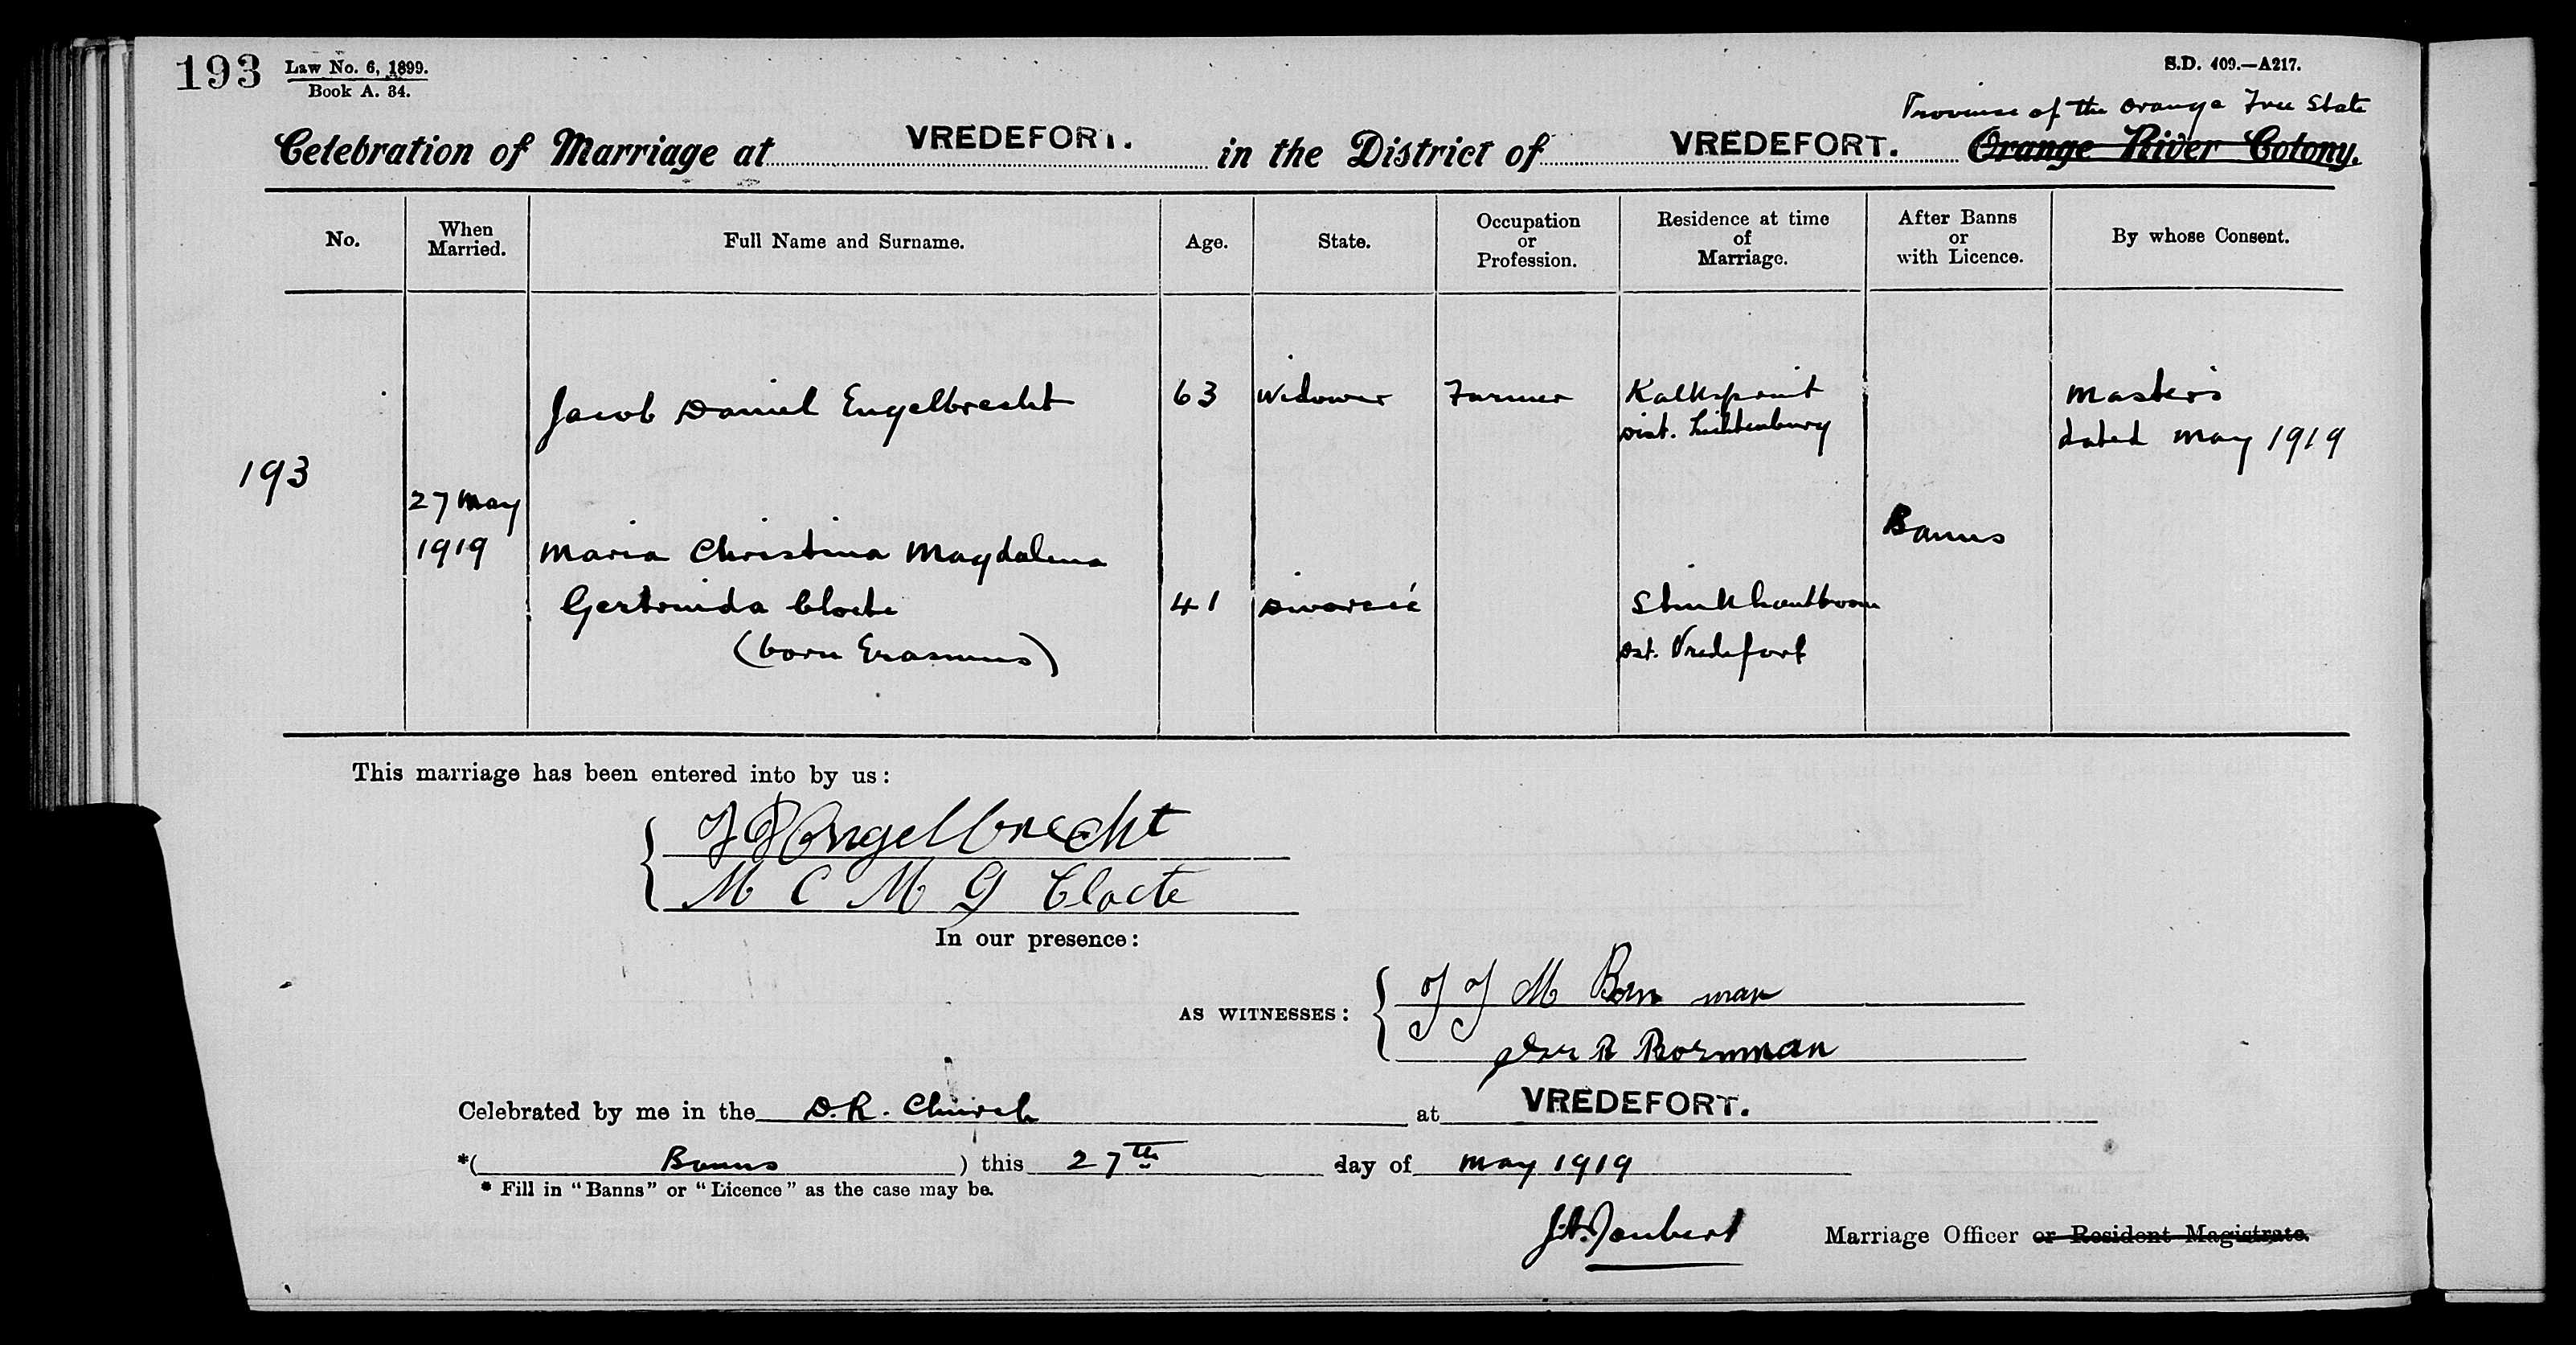 193 Law No. 6, 1899.
Book A. 34.
S.D. 409.—A217.
Province of the Orange Free State
Celebration of Marriage at VREDEFORT. in the District of VREDEFORT. Orange River Colony.
No. When Married. Full Name and Surname. Age. State. Occupation or Profession. Residence at time of Marriage. After Banns or with Licence. By whose Consent.
Jacob Daniel Engelbrecht 63 Widower Farmer Kalkspruit Masters
Dist. Lichtenburg dated May 1919
193
27 May
Banns
1919 Maria Christina Magdalena
Gertruida Cloete 41 Divorcée Stinkhoutboom
(born Erasmus) Dst. Vredefort
This marriage has been entered into by us:
J D Engelbrecht
M C M G Cloete
In our presence:
J J M Bornman
AS WITNESSES:
R Bornman
Celebrated by me in the D.R. Church at VREDEFORT.
*( Banns ) this 27th day of May 1919
* Fill in "Banns" or "Licence" as the case may be.
Joubert Marriage Officer or Resident Magistrate.